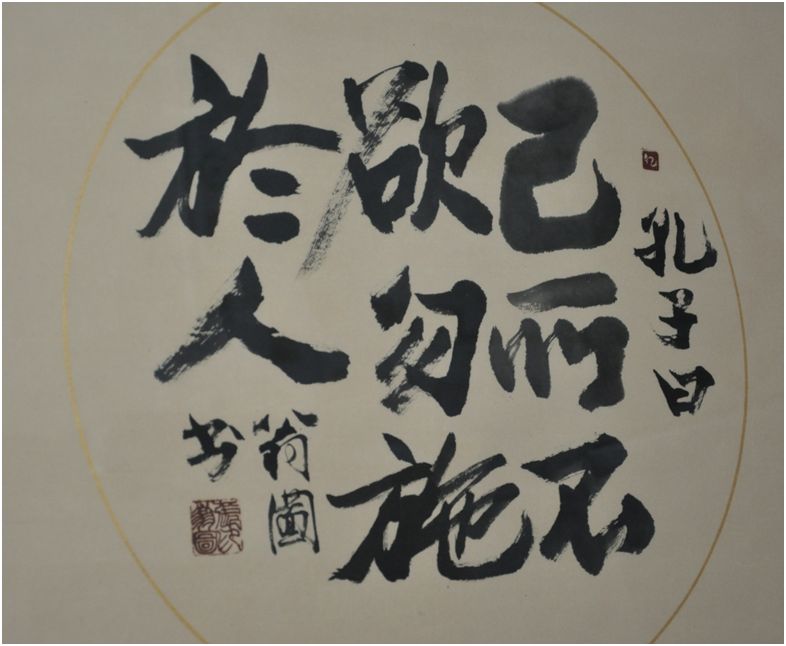 孔子曰
己所不
欲勿施
於人
圖
书